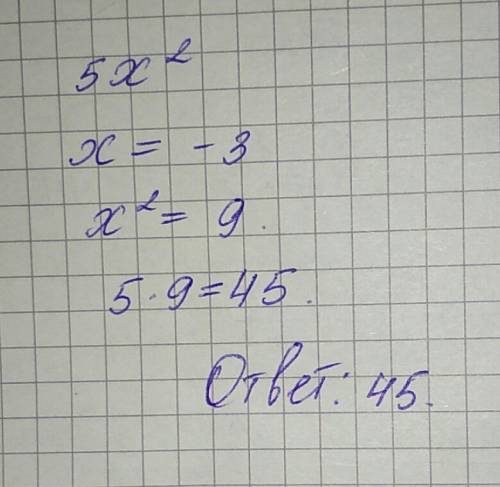 5x²
x = -3
x² = 9.
5·9=45.
Ответ: 45.